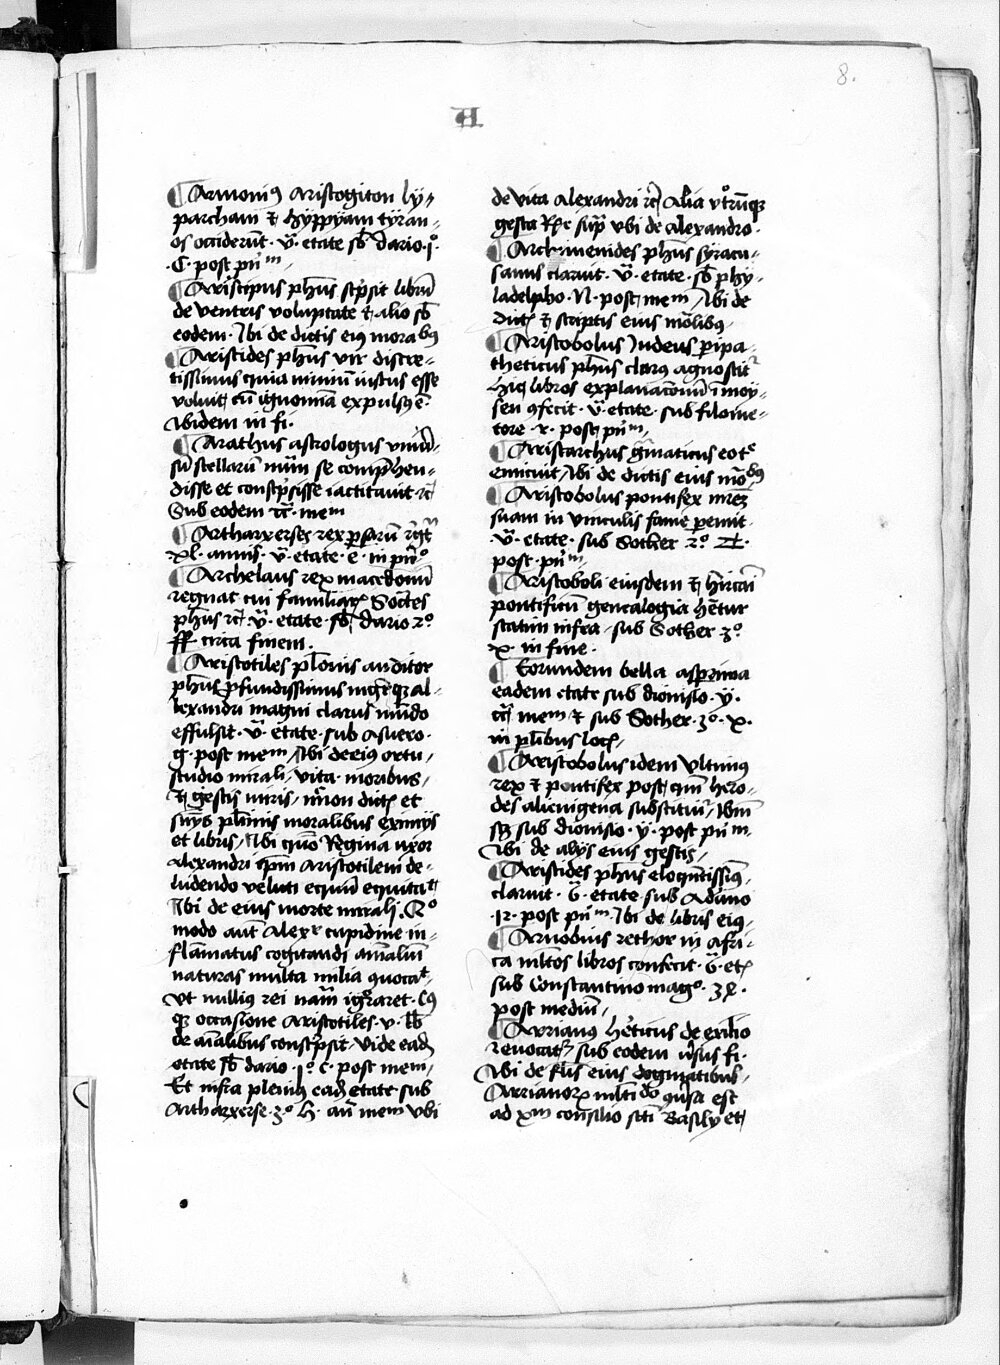 8.
A
¶ Armoniꝰ Aristogiton hy-
parcham ⁊ hyppyam tyran-
os occiderūt. v̄. etate sb̄ dario .i͛.
.C. post pn̄m
¶ Aristipus ph̄us scp̄sit librū
de ventris voluptate ⁊ alio sb̄
eodem. Vbi de dictis eiꝰ morabꝰ
¶ Aristides ph̄us vir discre-
tissimus quia nimiū iustus esse
voluit cū ignomīa expulsꝰ ē.
Ibidem in fi.
¶ Arathus astrologus
sū stellarū nūm se comp̄hen-
disse et conscp̄sisse iactitauit ⁊c̄
Sub eodem mem
¶ Artharxerses rex ꝑsarū
xl. annis. v̄. etate. e. in pn̄o
¶ Archelaus rex macedonū
regnat cui familiaꝝ Soc̄tes
ph̄us ⁊c̄ v̄. etate. sb̄ dario 2o.
ff. circa finem.
¶ Aristotiles pl̄onis auditor
ph̄us ꝓfundissimus al-
lexandri magni clarus mūdo
effulsit. v̄. etate. sub Asuero.
g. post mem / Vbi de eiꝰ ortu /
studio mirali / vita. moribus /
⁊ gestis miris / nc̄non dict̄ et
plimis moralibus eximijs
et libris / Vbi quō Regina uxor
alexandri ip̄m Aristotilem de-
ludendo veluti equū equitat
Vbi de eius morte mirali. Ro
modo aut̄ Alexr cupidine in-
flāmatus cognitandi aīaliū
naturas multa milia quocat
vt nulliꝰ rei nam̄ ignoraret. Cꝰ
qꝫ occasione Aristotiles. v. lb̄
de aīalibus conscp̄sit. Vide eadē
etate sb̄ dario. io. c. post mem /
Et infra pleniꝰ eadē etate sub
Artharxerse. 3o. h. an̄ mem vbi
de vita Alexandri ⁊c̄ Alia vtrūqꝫ
gesta sup̄ vbi de alexandro.
¶ Archimenides ph̄us syracu-
sanus claruit. v̄. etate. sb̄ phy-
ladelpho. N. post mem / Vbi de
dict̄ ⁊ scriptis eius mōlibꝰ /
¶ Aristobolus Iudeus ꝑipa-
theticus ph̄us clarꝰ agnoscit
hic libros explanac̄onū ī moy-
sen ꝯfecit. v̄. etate. sub filome-
tore. r. post pn̄m /
¶ Aristarchus gm̄aticus eoto
emicuit / Vbi de dictis eius mōbꝰ
¶ Aristobolus pontifex mr̄em
suam in vinculis fame ꝑemit.
v̄. etate. sub Sother 2o.
post. pn̄m.
¶ Aristoboli eiusdem ⁊ hircani
pontificū genealogia hētur
statim infra. sub Sother 3o.
x. in fine.
¶ Eorundem bella asꝑrima
eadem etate sub dionisio. y.
mem ⁊ sub Sother. 3o. x.
in pl̄ibus loc̄ /
¶ Aristobolus idem vltimus
rex ⁊ pontifex post quē hero-
des alienigena substituiť /
sꝫ sub dionisio. y. post pn̄m.
Vbi de alijs eius gestis /
¶ Aristides ph̄us eloquētissimꝰ
claruit. v̄. etate sub Adriano
.12. post pn̄m. Vbi de libris eiꝰ /
¶ Arnobius rethor in afri-
ca mltos libros confecit. v̄. et̄
sub Constantino mago.
post mediū /
¶ Arrianus hēticus de exilio
reuocat sub eodem fi.
Vbi de eius dogmatibus /
Arrianorꝫ mlti est
ad xm consilio scti Basilij et